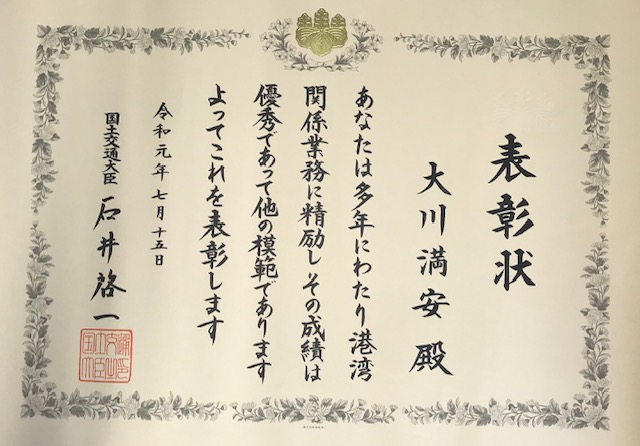 表彰状
大川満安 殿
あなたは多年にわたり港湾
関係業務に精励しその成績は
優秀であって他の模範であります
よってこれを表彰します
令和元年七月十五日
国土交通大臣 石井啓一
国土交通大臣之印